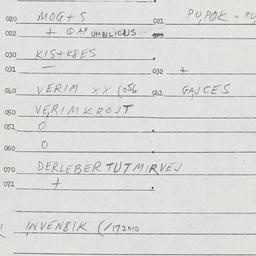 020 MOG+S 021 PUPOK = PU
022 + ФAP UMBILICUS
030 KIS+K8ES
031 — 032 +
040 VERIM XX (056 041 GAJCES
050 VERIMKROJT
051 0
060 0
070 DERLEBERTUTMIRVEJ
071 +
INVEN8IK (/173010